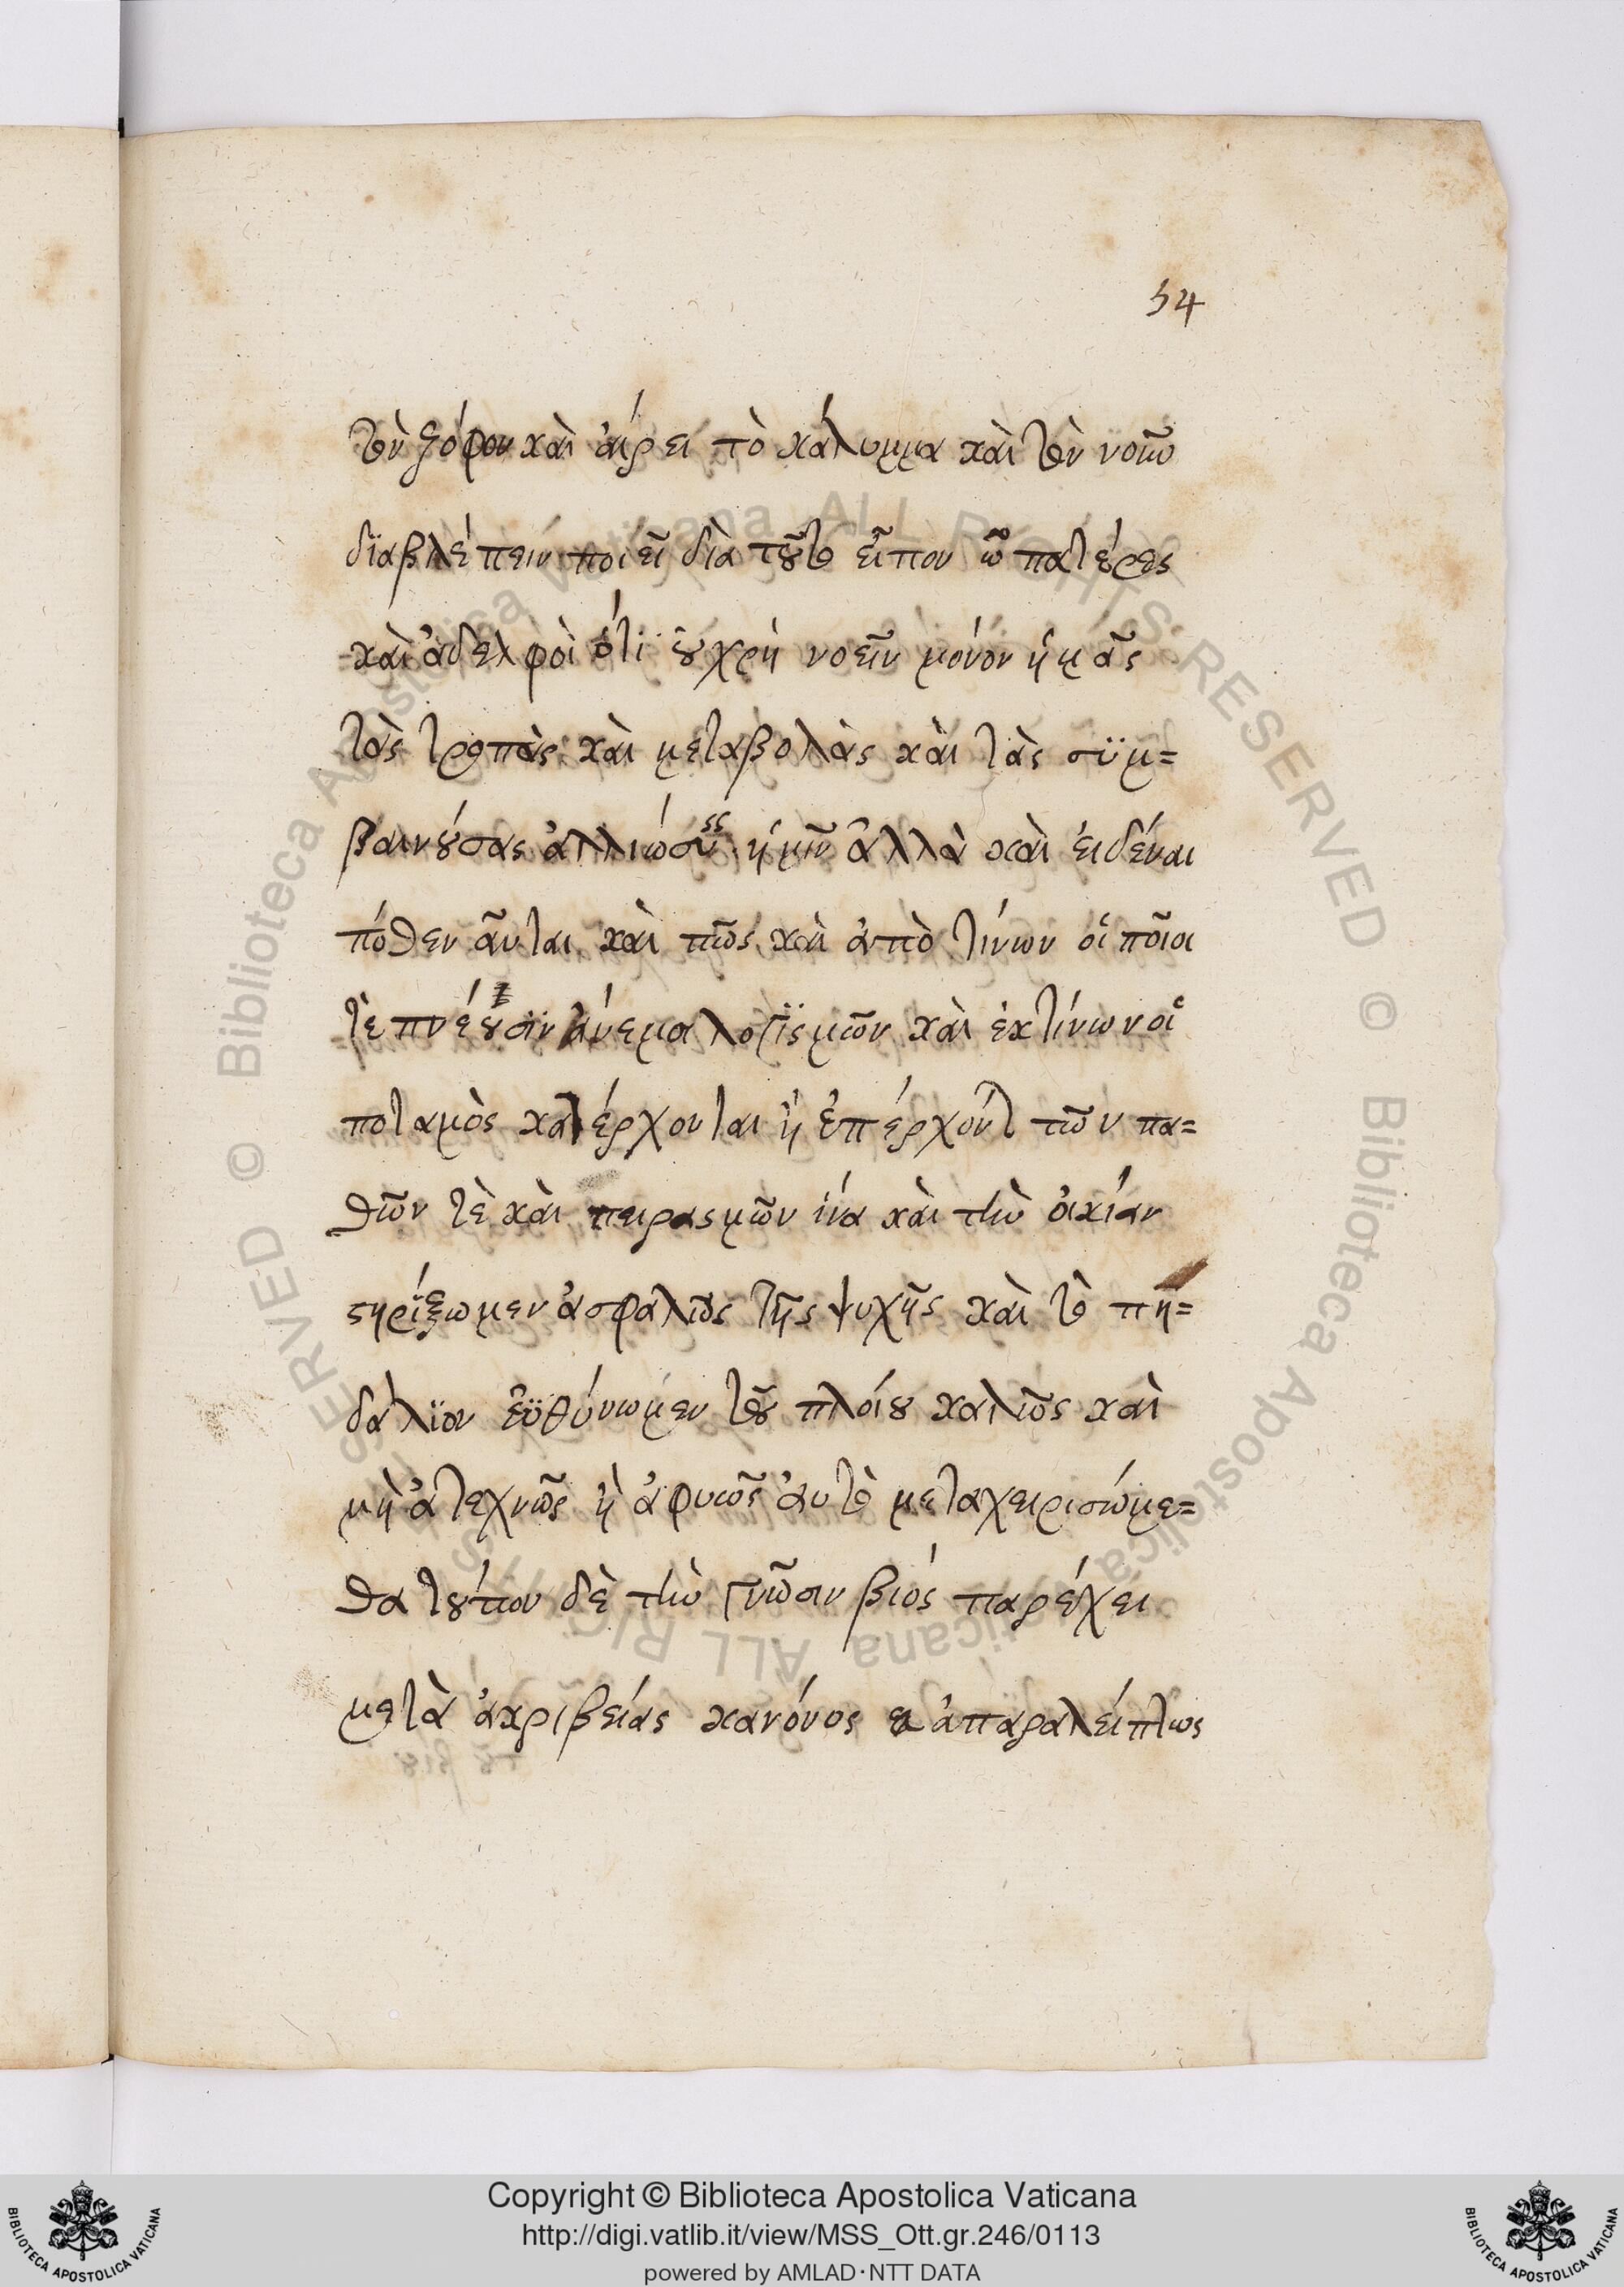 54
τὸν ζόφον καὶ ἀίρει τὸ κάλυμμα καὶ τὸν νοῦν
δϊαβλέπειν ποιεῖ δϊὰ τοῦτο εἶπον ὦ πατέρες
καὶ ἀδελφοὶ ὅτι οὐ χρὴ νοεῖν μόνον ἡμᾶς
τὰς τροπὰς καὶ μεταβολὰς καὶ τὰς σϋμ=
βαινούσας ἀλλιώσ ἡμῖν ἀλλὰ καὶ ἐιδέναι
πόθεν αὗται καὶ πῶς καὶ ἀπὸ τίνων οἱ ποῖοι
τὲ πνέουσϊν ἄνεμοι λογϊσμῶν καὶ ἐκ τίνων οἱ
ποταμὸς κατέρχονται ἢ ἐπέρχοντ τῶν πα=
θῶν τὲ καὶ πειρασμῶν ἵνα καὶ τὴν ὀικίαν
στηρίξωμεν ἀσφαλῶς τῆς ψυχῆς καὶ τὸ πη=
δάλϊον ἐϋθύνωμεν τοῦ πλοίου καλῶς καὶ
μὴ ἀτεχνῶς ἢ ἀφυῶς ἀυτὸ μεταχειρισώμε=
θα τούτων δὲ τὴν γνῶσιν βιός παρέχει
μετὰ ἀκριβείας κανόνος ἀπαραλείπτως
Copyright © Biblioteca Apostolica Vaticana
http://digi.vatlib.it/view/MSS_Ott.gr.246/0113
powered by AMLAD·NTT DATA
BIBLIOTECA APOSTOLICA VATICANA
BIBLIOTECA APOSTOLICA VATICANA
© Biblioteca Apostolica Vaticana ALL RIGHTS RESERVED
© Biblioteca Apostolica Vaticana ALL RIGHTS RESERVED